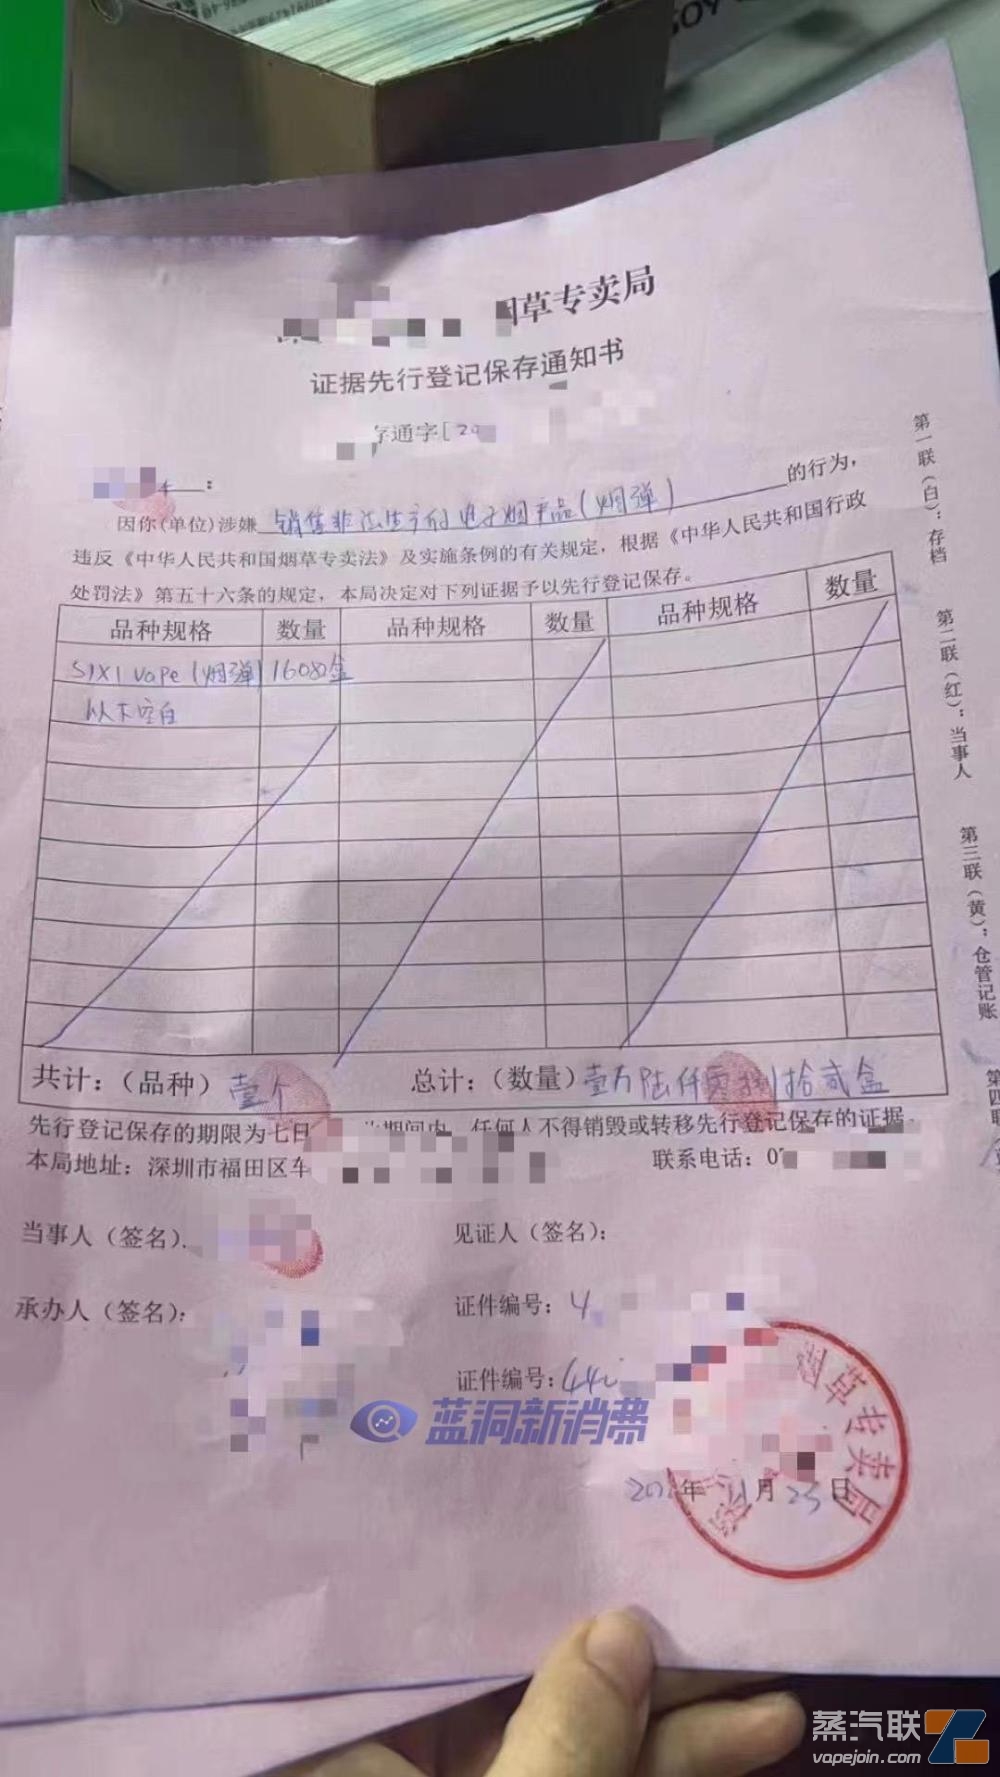 烟草专卖局
证据先行登记保存通知书
存通字[20
：
因你(单位)涉嫌 销售非法生产的电子烟产品(烟弹) 的行为，
违反《中华人民共和国烟草专卖法》及实施条例的有关规定，根据《中华人民共和国行政
处罚法》第五十六条的规定，本局决定对下列证据予以先行登记保存。
品种规格 数量 品种规格 数量 品种规格 数量
SIXI vape (烟弹) 16082盒
以下空白
共计：（品种）壹个 总计：（数量）壹万陆仟零捌拾贰盒
先行登记保存的期限为七日 期间内，任何人不得销毁或转移先行登记保存的证据
本局地址：深圳市福田区车 联系电话：0
当事人（签名） 见证人（签名）：
承办人（签名）： 证件编号：4
证件编号：44
年 11月 23日
烟草专卖局
第一联（白）：存档 第二联（红）：当事人 第三联（黄）：仓管记账 第四联
蓝洞新消费
蒸汽联
vapejoin.com